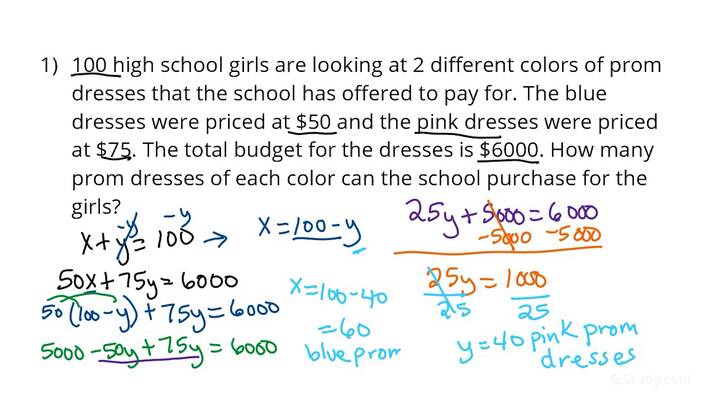 1) 100 high school girls are looking at 2 different colors of prom
dresses that the school has offered to pay for. The blue
dresses were priced at $50 and the pink dresses were priced
at $75. The total budget for the dresses is $6000. How many
prom dresses of each color can the school purchase for the
girls?
-y -y
x+y=100 → x=100-y
50x+75y=6000
50(100-y)+75y=6000
5000-50y+75y=6000
25y+5000=6000
-5000 -5000
25y=1000
25 25
y=40 pink prom
dresses
x=100-40
=60
blue prom
©Study.com